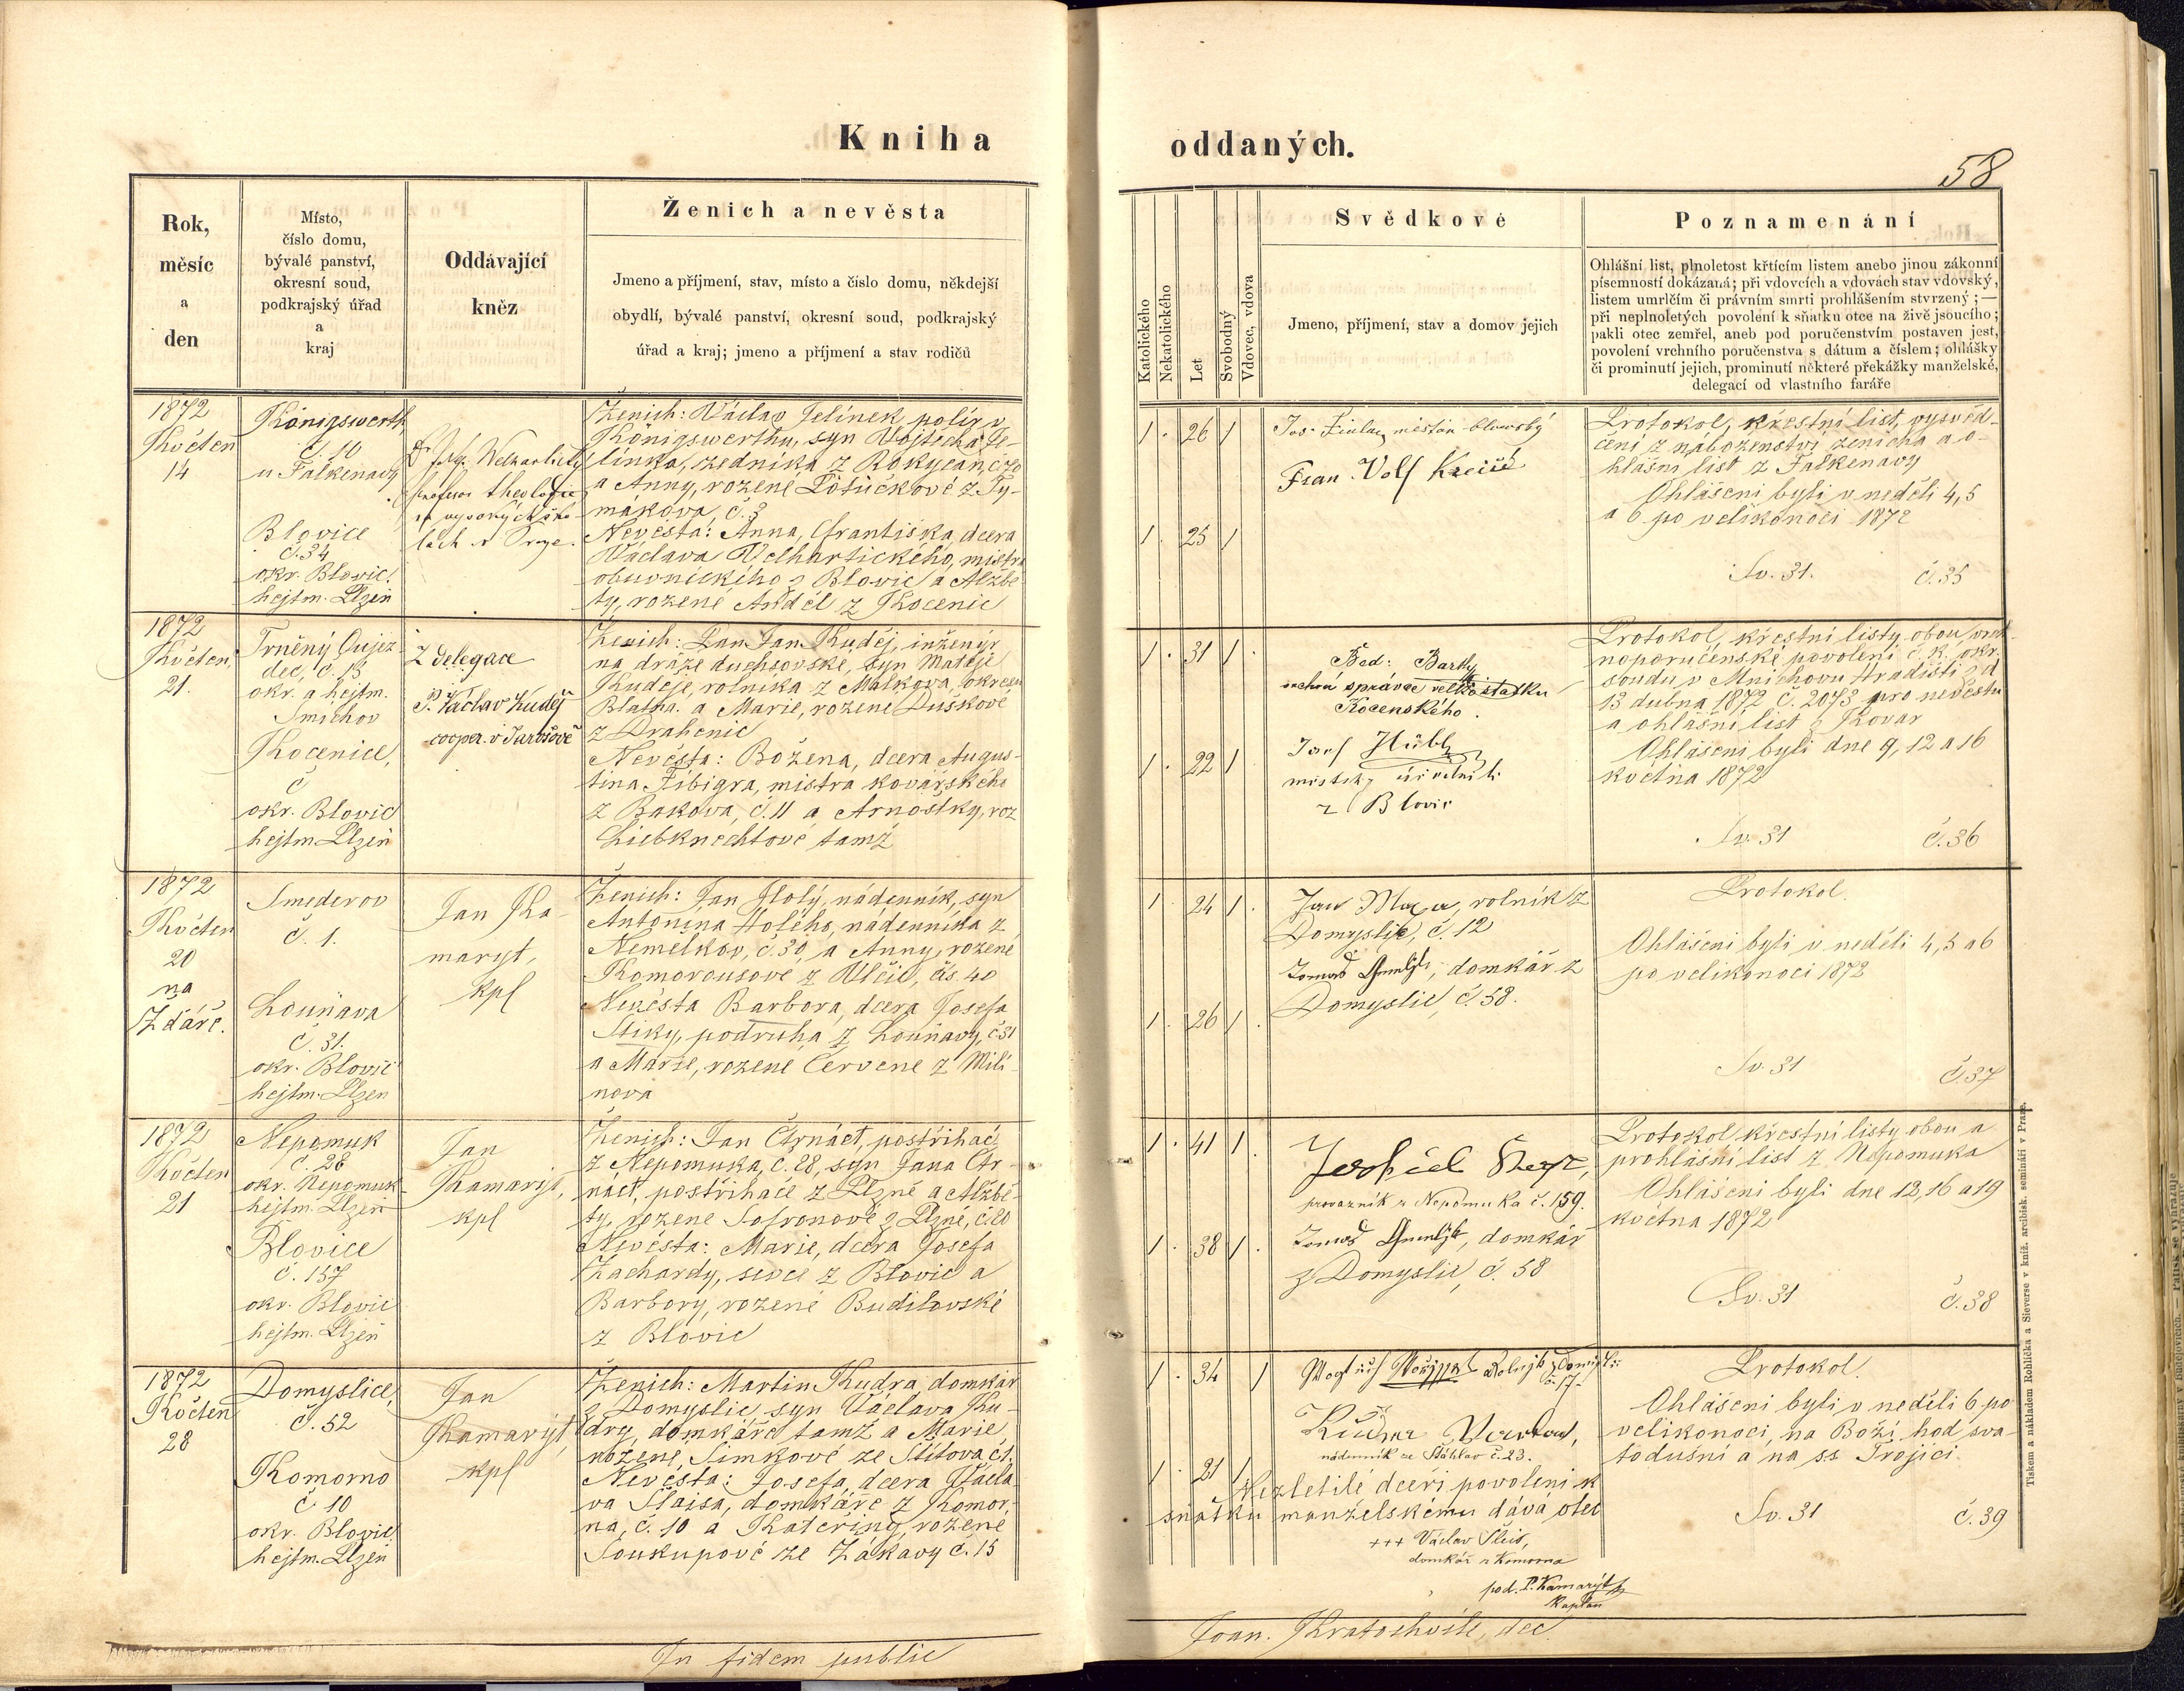 Kniha
oddaných.
58
Rok,
měsíc
a
den
Místo,
číslo domu,
bývalé panství,
okresní soud,
podkrajský úřad
a
kraj
Oddávající
kněz
Ženich a nevěsta
Jmeno a příjmení, stav, místo a číslo domu, někdejší
obydlí, bývalé panství, okresní soud, podkrajský
úřad a kraj; jmeno a příjmení a stav rodičů
Katolického
Nekatolického
Let
Svobodný
Vdovec, vdova
Svědkové
Jmeno, příjmení, stav a domov jejich
Poznamenání
Ohlášní list, plnoletost křtícím listem anebo jinou zákonní
písemností dokázaná; při vdovcích a vdovách stav vdovský,
listem umrlčím či právním smrti prohlášením stvrzený; —
při neplnoletých povolení k sňatku otce na živě jsoucího;
pakli otec zemřel, aneb pod poručenstvím postaven jest,
povolení vrchního poručenstva s dátum a číslem; ohlášky
či prominutí jejich, prominutí některé překážky manželské,
delegací od vlastního faráře
1872
Květen
14
Königswerth
č. 10
u Falkenavy
Blovice
č. 34
okr. Blovic.
hejtm. Plzeň
theologie
na vysokých ško-
lách v Praze.
Ženich: Václav Jelínek, polír v
Königswerthu, syn Vojtěcha Je-
línka, zedníka z Rokycan č. 70
a Anny, rozené Potůčkové z Ty-
mákova č. 3
Nevěsta: Anna, Františka, dcera
Václava Velhartického, mistra
obuvnického z Blovic a Alžbě-
ty, rozené Anděl z Kocenic
1 26 1
1 25 1
Fran. Volf Krejčí
Protokol, křestní list, vysvěd-
čení z náboženství ženicha a o-
hlášní list z Falkenavy
Ohlášeni byli v neděli 4, 5
a 6 po velikonoci 1872
Sv. 31. č. 35
1872
Květen
21.
Trněný Oujez-
dec, č. 13
okr. a hejtm.
Smíchov
Kocenice,
č
okr. Blovic
hejtm Plzeň
Z delegace
P. Václav Kuděj
cooper. v Jarošově
Ženich: Pan Jan Kuděj, inženýr
na dráze duchcovské, syn Matěje
Kuděje, rolníka z Málkova, okresu
Blatna. a Marie, rozené Duškové
z Drahenic
Nevěsta: Božena, dcera Augus-
tina Fibigra, mistra kovářského
z Bakova, č. 11 a Arnoštky, roz
Liebknechtové tamž
1 31 1
1 22 1
správce velkostatku
Kocenského.
Josef Hübl
městský
z Blovic
Protokol, křestní listy obou, vrch-
noporučenské povolení c. k. okr.
soudu v Mnichovu Hradišti dd
13 dubna 1872 č. 2073 pro nevěstu
a ohlášní list z Kovar
Ohlášeni byli dne 9, 12 a 16
května 1872
Sv. 31 č. 36
1872
Květen
20
na
Žďáře.
Smederov
č. 1.
Louňava
č. 31.
okr. Blovic
hejtm. Plzen
Jan Ka-
maryt,
kpl
Ženich: Jan Holý, nádenník, syn
Antonína Holého, nádenníka z
Nemělkov, č. 30, a Anny, rozené
Komorousové z Vlčic, čís 40
Nevěsta Barbora, dcera Josefa
Štiky, podruha z Louňavy, č. 31
a Marie, rozené Červené z Mili-
nova
1 24 1
1 26 1
Jan Maxa, rolník z
Domyslic, č. 12
Tomáš, domkář z
Domyslic, č. 58.
Protokol.
Ohlášeni byli v neděli 4, 5 a 6
po velikonoci 1872
Sv. 31 č. 37
1872
Květen
21
Nepomuk
č. 28
okr. Nepomuk
hejtm. Plzeň
Blovice
č. 157
okr. Blovic
hejtm. Plzeň
Jan
Kamaryt,
kpl
Ženich: Jan Čtrnáct, postřihač
z Nepomuka, č. 28, syn Jana Čtr-
náct, postřihače z Plzně a Alžbě-
ty, rozené Sofronové z Plzně, č. 20
Nevěsta: Marie, dcera Josefa
Zachardy, ševce z Blovic a
Barbory, rozené Budilovské
z Blovic
1 41 1
1 38 1
provazník z Nepomuka č. 159.
Tomáš, domkář
z Domyslic, č. 58
Protokol křestní listy obou a
prohlášní list z Nepomuka
Ohlášeni byli dne 12, 16 a 19
května 1872
Sv. 31 č. 38
1872
Květen
28
Domyslice,
č. 52
Komorno
č 10
okr. Blovic
hejtm. Plzeň
Jan
Kamaryt,
kpl
Ženich: Martin Kudra, domkář
z Domyslic syn Václava Ku-
dry, domkáře tamž a Marie,
rozené, Šimkové ze Štítova č 1.
Nevěsta: Josefa, dcera Václa-
va Šlaisa, domkáře z Komor-
na, č. 10 a Kateřiny, rozené
Soukupové ze Zákavy č. 15
1 34 1
1 21 1
č. 17
nádenník ze Stáhlav č. 23.
Nezletilé dceři povolení k
sňatku manželskému dává otec
+++ Václav Šleis,
domkář z Komorna
pod. P. Kamarýt
kaplan
Protokol.
Ohlášeni byli v neděli 6 po
velikonoci, na Boží hod sva-
todušní a na ss Trojici.
Sv. 31 č. 39
In fidem public
Joan. Kratochvíle, dec.
Tiskem a nákladem Rohlíčka a Sieverse v kníž. arcibisk. semináři v Praze.